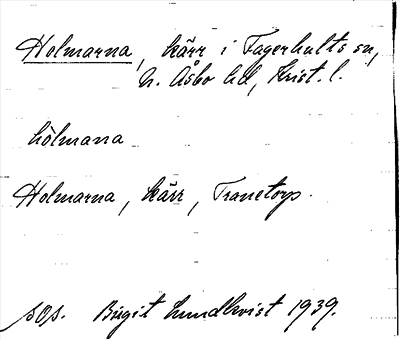 Holmarna, kärr i Fagerhults sn,
N. Åsbo hd, Krist. l.
hòlmana
Holmarna, kärr, Tranetorp.
sop. Birgit Lundkvist 1939.